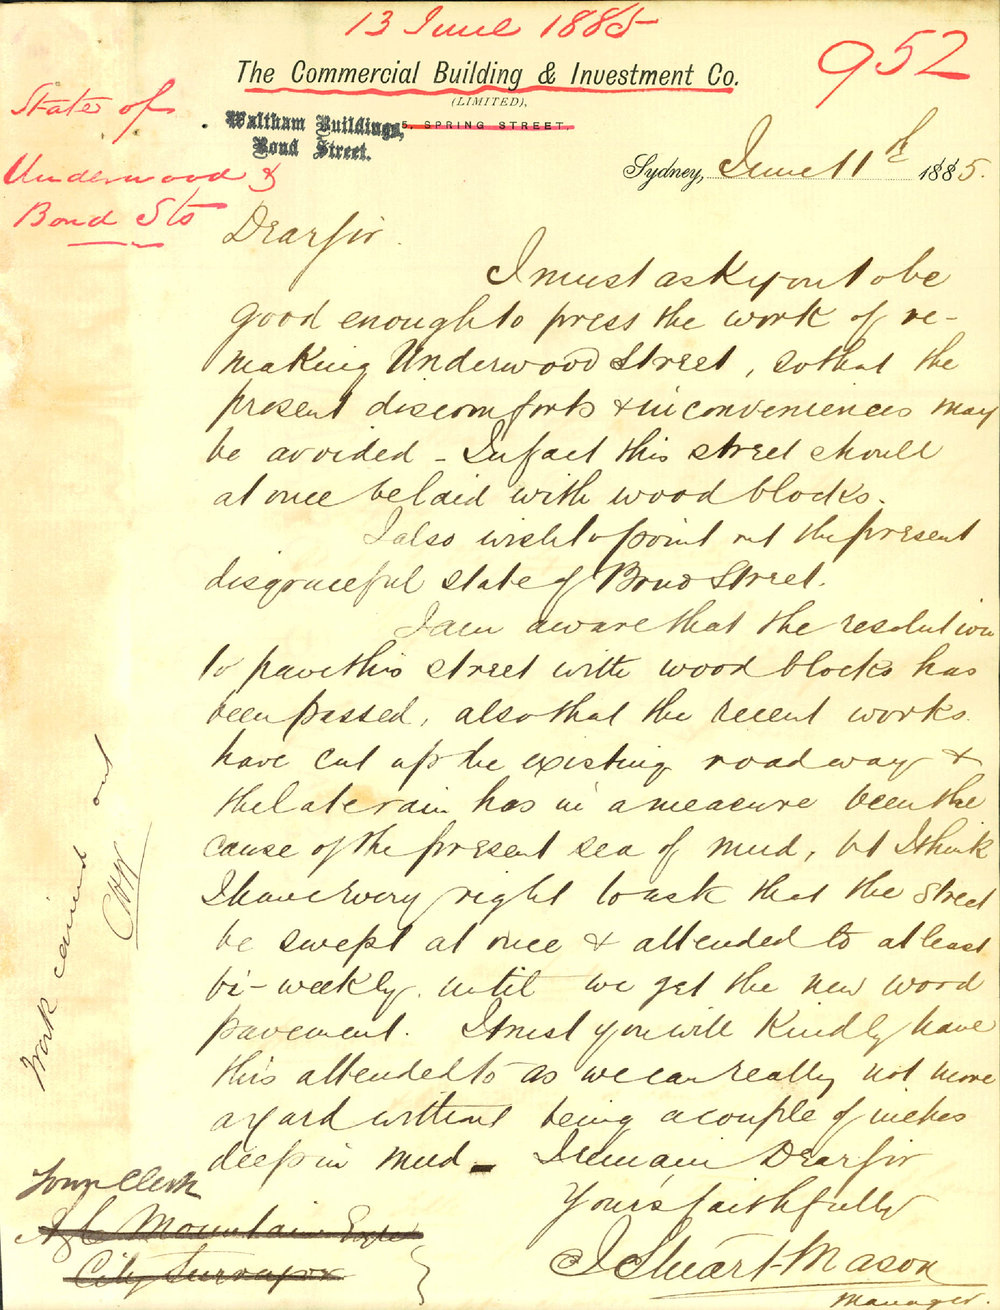 13 June 1885
952
The Commercial Building & Investment Co.
(LIMITED),
5, SPRING STREET.
Waltham Buildings,
Bond Street.
State of
Underwood &
Bond Sts
Sydney, June 11th 1885.
Dear Sir.
I must ask you to be
good enough to press the work of re-
making Underwood Street, so that the
present discomforts & inconveniences may
be avoided - In fact this street should
at once be laid with wood blocks.
I also wish to point out the present
disgraceful state of Bond Street.
I am aware that the resolution
to pave this street with wood blocks has
been passed, also that the recent works
have cut up the existing roadway &
the late rain has in a measure been the
cause of the present sea of mud, but I think
I have every right to ask that the street
be swept at once & attended to at least
bi-weekly, until we get the new wood
pavement. I trust you will kindly have
this attended to as we can really not move
a yard without being a couple of inches
deep in mud - I remain Dear Sir
Yours faithfully
J Stuart Mason
Manager.
Town Clerk
A C Mountain Esqre
City Surveyor
Work carried out